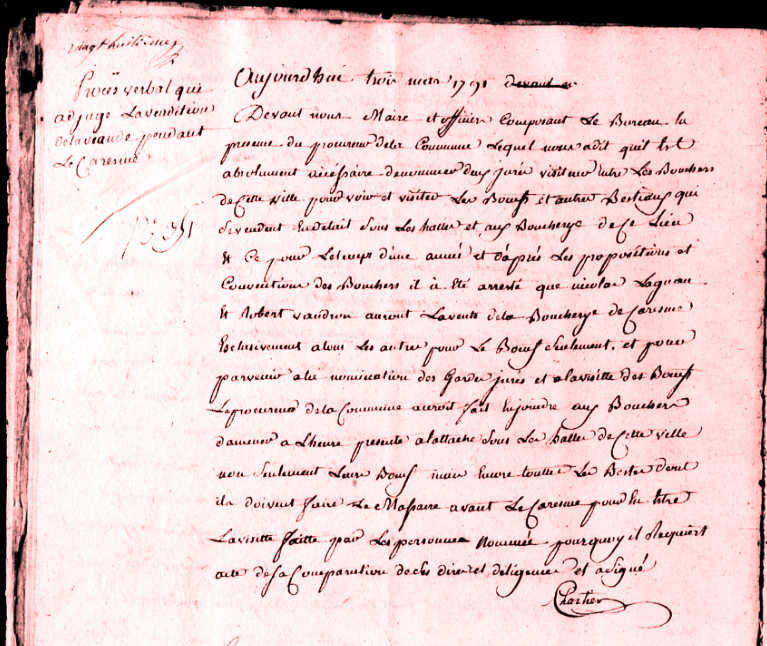 vingt huitieme
Procès verbal qui
adjuge La vendition
de la viande pendant
Le Caresme
Aujourdhuy trois mars 1791 devant n
Devant nous Maire et officiers Composant Le Bureau En
presence du procureur dela Commune Lequel nous adit quil Est
absolument nécéssaire denommer deux jurés visiteurs Entre Les Bouchers
de Cette ville pour voir et visiter Les Bœufs et autres Bestiaux qui
se vendent En detail sous Les halles et aux Boucherye de Ce Lieu
Et Ce pour Letemps d'une année et d'après Les propositions et
Conventions des Bouchers il à Eté arresté que nicolas Lagnan
Et Robert vaudron auront La vente dela Boucherye de Caresme
Esclusivement atous Les autres pour Le Bœuf seulement, et pour
parvenir ala nomination des Garde jurés et a lavisitte des Bœufs
Le procureur dela Commune auroit fait Enjoindre aux Bouchers
damener a Lheure presente alattache sous Les halles de Cette ville
non seulement Leurs Bœufs mais Encore touttes Les Bestes dont
ils doivent faire Le Massacre avant Le Caresme pour En Estre
Lavisitte faitte par Les personnes Nommées, pourquoy il Requiert
acte de sa Comparution de ses dires et deligences et asigné
Chartier